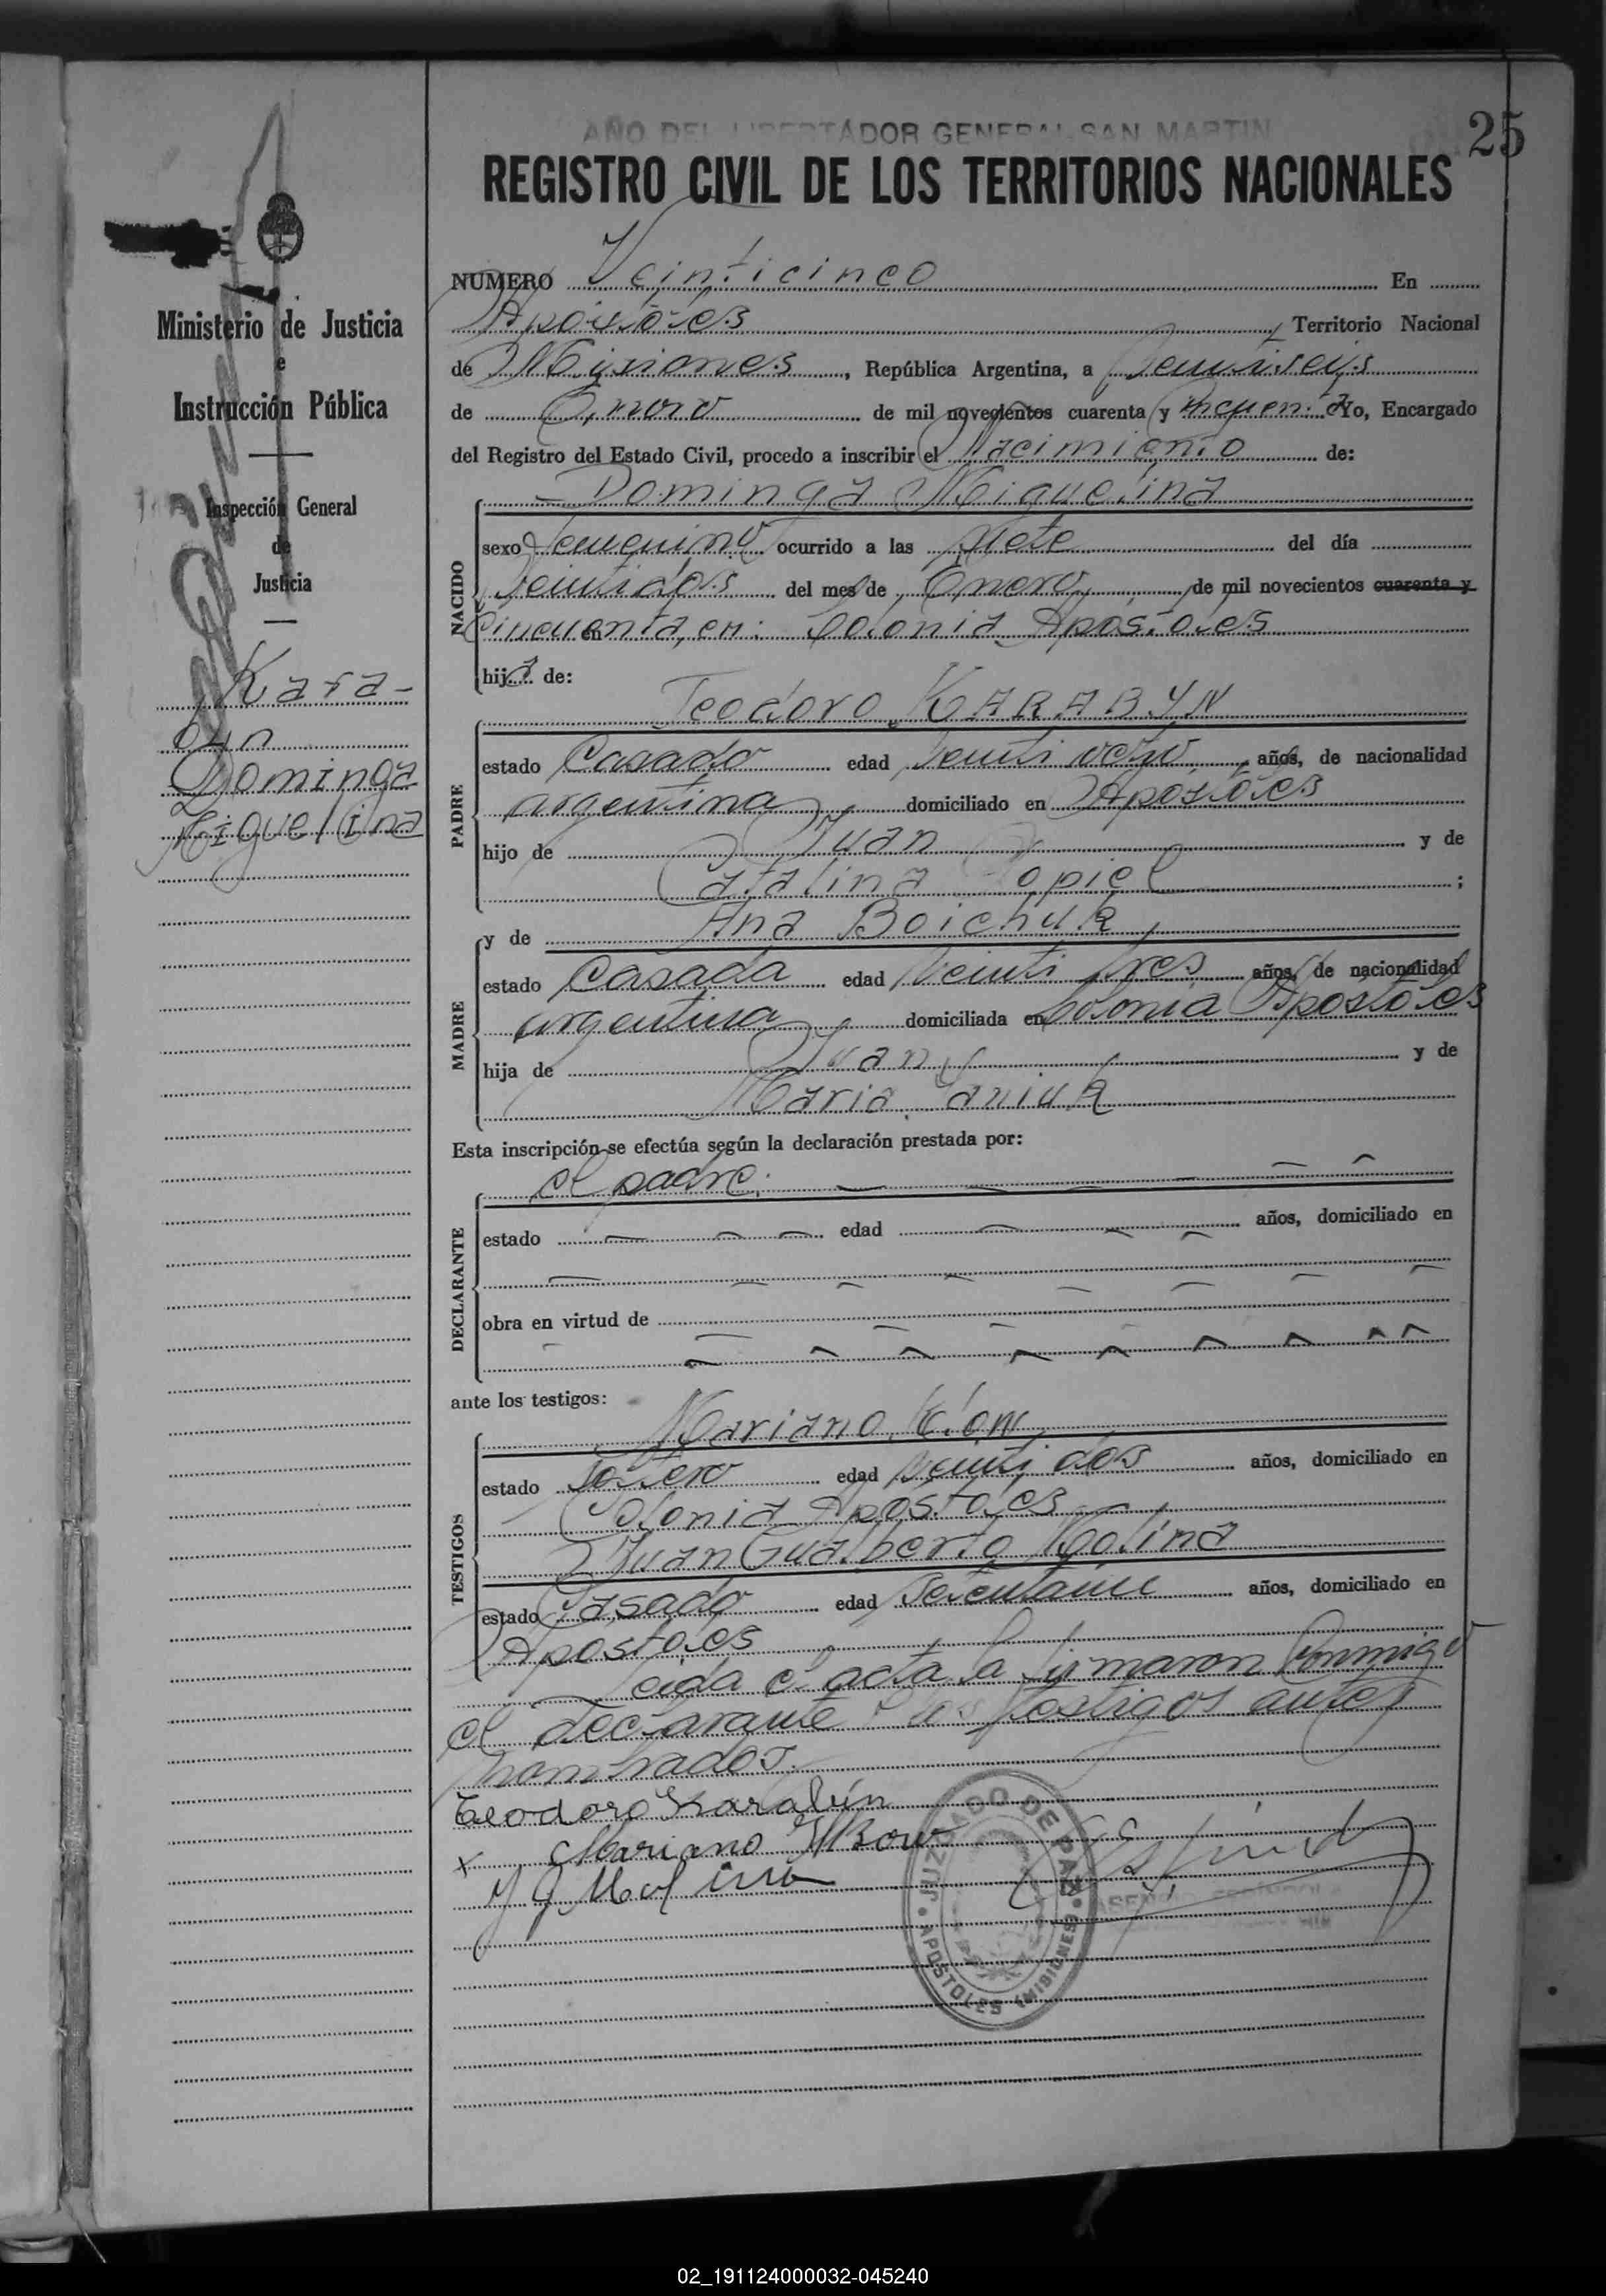 AÑO DEL LIBERTADOR GENERAL SAN MARTIN
25
REGISTRO CIVIL DE LOS TERRITORIOS NACIONALES
Ministerio de Justicia
e
Instrucción Pública
Inspección General
de
Justicia
Kara-
byn
Dominga
Miguelina
NUMERO Veinticinco En
Apóstoles, Territorio Nacional
de Misiones, República Argentina, a veintiseis
de Enero de mil novecientos cuarenta y cincuenta Yo, Encargado
del Registro del Estado Civil, procedo a inscribir el Nacimiento de:
Dominga Miguelina
NACIDO
sexo femenino ocurrido a las siete del día
veintidós del mes de Enero de mil novecientos cuarenta y
cincuenta, en: Colonia Apóstoles
hija de:
Teodoro KARABYN
PADRE
estado Casado edad veinti ocho, años, de nacionalidad
argentina domiciliado en Apóstoles
hijo de Juan y de
Catalina Kopiel;
y de Ana Boichuk
MADRE
estado Casada edad veinti tres años, de nacionalidad
argentina domiciliada en Colonia Apóstoles
hija de Juan y de
Maria Janiuk
Esta inscripción se efectúa según la declaración prestada por:
el padre.
DECLARANTE
estado edad años, domiciliado en
obra en virtud de
ante los testigos:
Mariano
TESTIGOS
estado soltero edad veinti dós años, domiciliado en
Colonia Apóstoles
Juan Gualberto Molina
estado Casado edad años, domiciliado en
Apóstoles
Leida el acta la firmaron conmigo
el declarante y los testigos antes
nombrados.
Teodoro Karabin
x Mariano
J G Molina
JUZGADO DE PAZ
APOSTOLES (MISIONES)
02_191124000032-045240